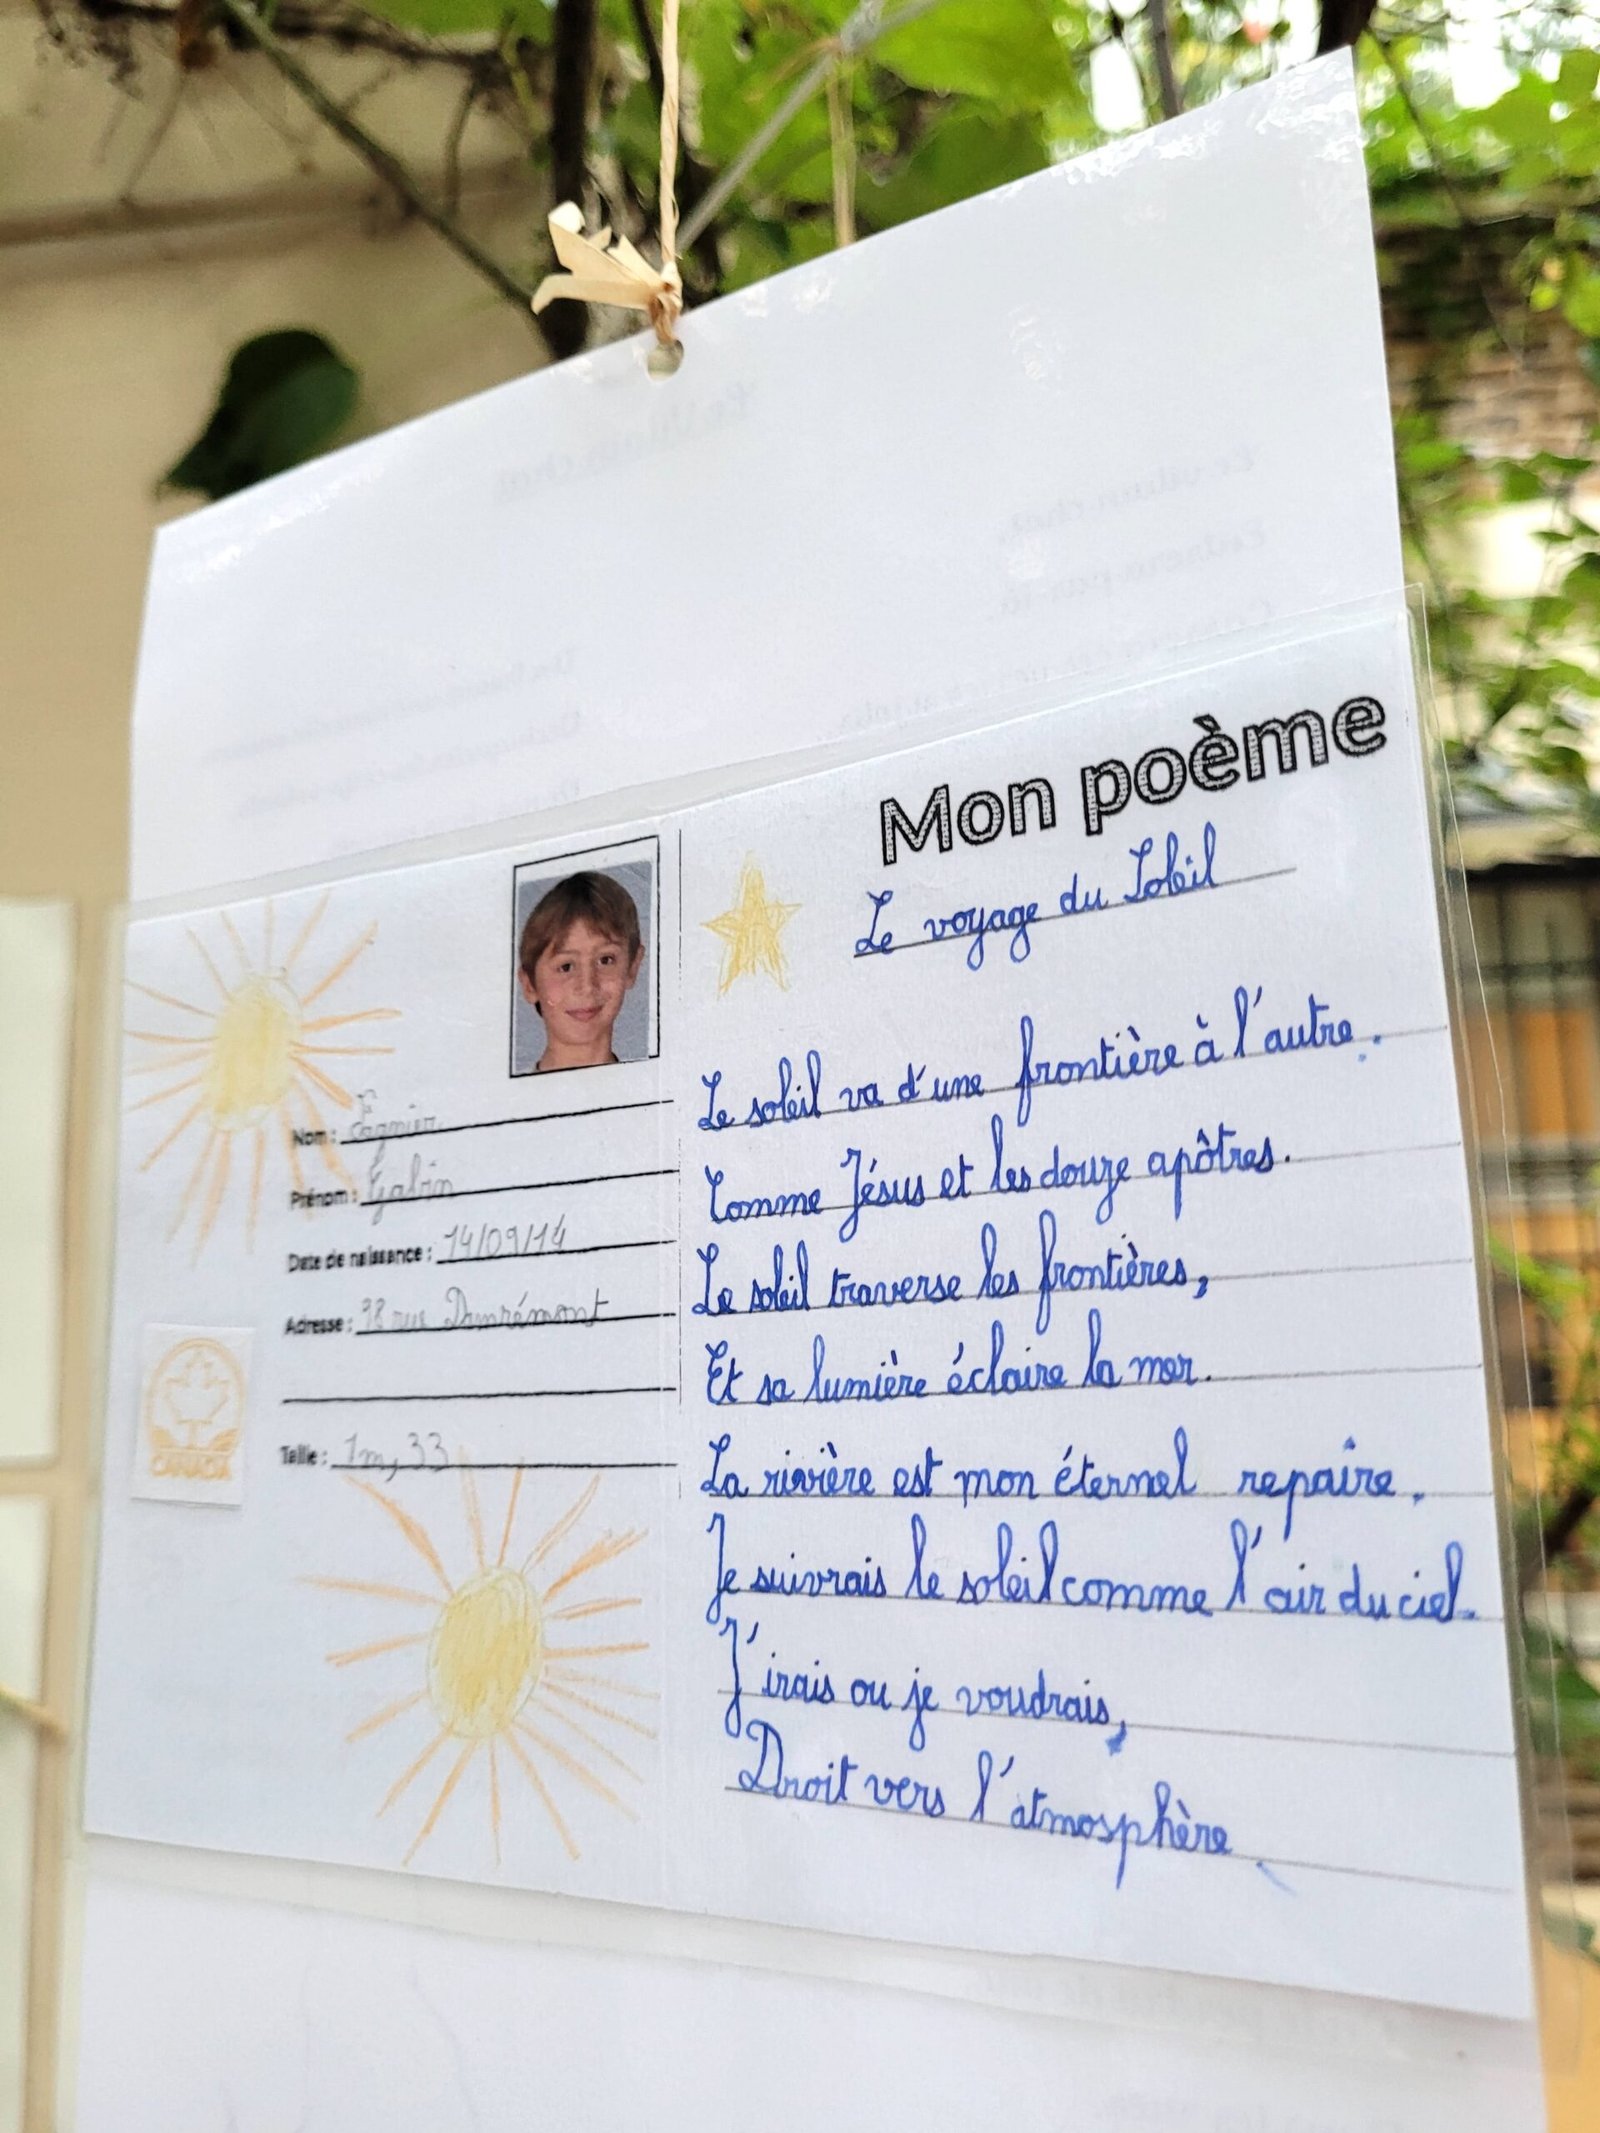 Mon poème
Le voyage du Soleil
Nom : Fagnier
Prénom : Gabin
Date de naissance : 14/09/14
Adresse : 98 rue Damrémont
Taille : 1m,33
CANADA
Le soleil va d'une frontière à l'autre.
Comme Jésus et les douze apôtres.
Le soleil traverse les frontières,
Et sa lumière éclaire la mer.
La rivière est mon éternel repaire.
Je suivrais le soleil comme l'air du ciel.
J'irais ou je voudrais,
Droit vers l'atmosphère